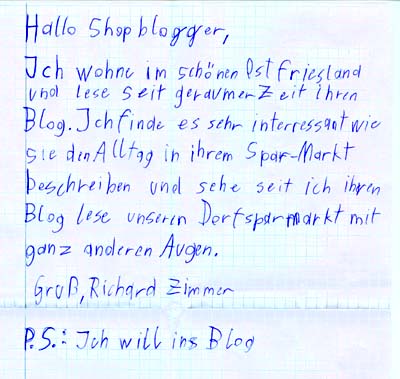 Hallo Shopblogger,
Ich wohne im schönen Ostfriesland
und lese seit geraumer Zeit ihren
Blog. Ich finde es sehr interressant wie
sie den Alltag in ihrem Spar-Markt
beschreiben und sehe seit ich ihren
Blog lese unseren Dorfsparmarkt mit
ganz anderen Augen.
Gruß, Richard Zimmer
P.S.: Ich will ins Blog